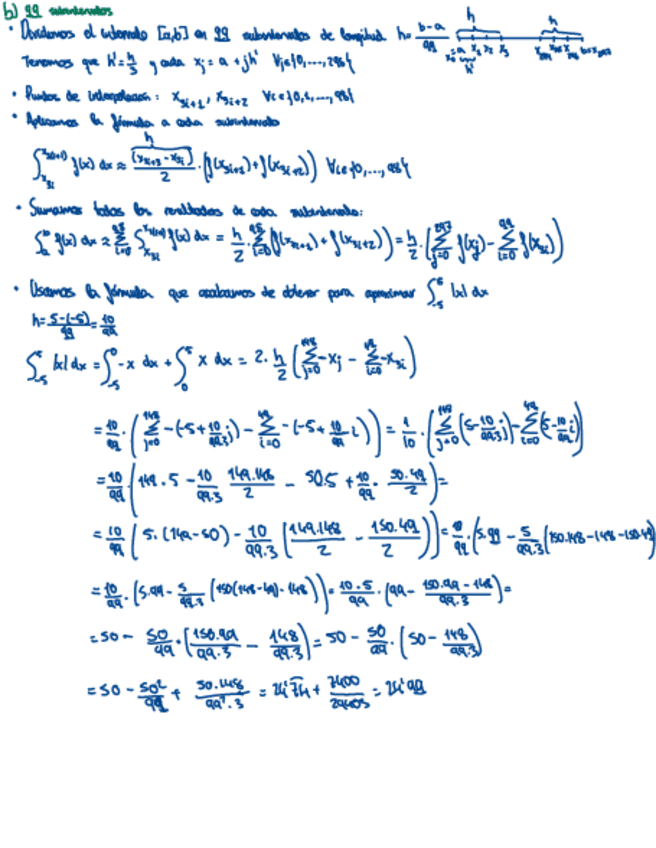 b) 99 subintervalos
• Dividimos el intervalo [a,b] en 99 subintervalos de longitud h = \frac{b-a}{99}
Tenemos que h' = \frac{h}{3} y cada x_j = a + jh' ∀j∈{0,...,298}
• Puntos de interpolación: x_{3i+1}, x_{3i+2} ∀i∈{0,1,...,98}
• Aplicamos la fórmula a cada subintervalo
∫_{x_{3i}}^{x_{3(i+1)}} f(x) dx ≈ \frac{\overbrace{(x_{3i+3} - x_{3i})}^{h}}{2} · (f(x_{3i+1}) + f(x_{3i+2})) ∀i∈{0,...,98}
• Sumamos todos los resultados de cada subintervalo:
∫_a^b f(x) dx ≈ \sum_{i=0}^{98} ∫_{x_{3i}}^{x_{3(i+1)}} f(x) dx = \frac{h}{2} · \sum_{i=0}^{98} (f(x_{3i+1}) + f(x_{3i+2})) = \frac{h}{2} · ( \sum_{j=0}^{297} f(x_j) - \sum_{i=0}^{99} f(x_{3i}) )
• Usamos la fórmula que acabamos de obtener para aproximar ∫_{-5}^{5} |x| dx
h = \frac{5-(-5)}{99} = \frac{10}{99}
∫_{-5}^{5} |x| dx = ∫_{-5}^{0} -x dx + ∫_{0}^{5} x dx = 2 · \frac{h}{2} ( \sum_{j=0}^{148} -x_j - \sum_{i=0}^{49} -x_{3i} )
= \frac{10}{99} · ( \sum_{j=0}^{148} -(-5 + \frac{10}{99.3} j) - \sum_{i=0}^{49} -(-5 + \frac{10}{99} i) ) = \frac{1}{10} · ( \sum_{j=0}^{148} (5 - \frac{10}{99.3} j) - \sum_{i=0}^{49} (5 - \frac{10}{99} i) )
= \frac{10}{99} ( 149 · 5 - \frac{10}{99.3} \frac{149.148}{2} - 50.5 + \frac{10}{99} · \frac{50.49}{2} ) =
= \frac{10}{99} ( 5 · (149-50) - \frac{10}{99.3} ( \frac{149.148}{2} - \frac{150.49}{2} ) ) = \frac{10}{99} · ( 5.99 - \frac{5}{99.3} ( 150.148 - 148 - 150.49
= \frac{10}{99} · ( 5.99 - \frac{5}{99.3} ( 150(148-49) - 148 ) ) = \frac{10.5}{99} · ( 99 - \frac{150.99 - 148}{99.3} ) =
= 50 - \frac{50}{99} · ( \frac{150.99}{99.3} - \frac{148}{99.3} ) = 50 - \frac{50}{99} · ( 50 - \frac{148}{99.3} )
= 50 - \frac{50^2}{99} + \frac{50.148}{99^2.3} = 24'\overline{74} + \frac{7400}{29403} = 24'99